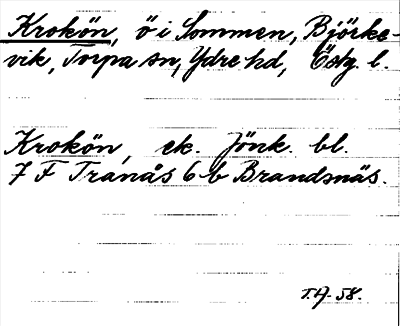 Krokön, ö i Sommen, Björke-
vik, Torpa sn, Ydre hd, Östg. l.
Krokön, ek. Jönk. bl.
7 F Tranås 6 b Brandsnäs.
T.A. 58.